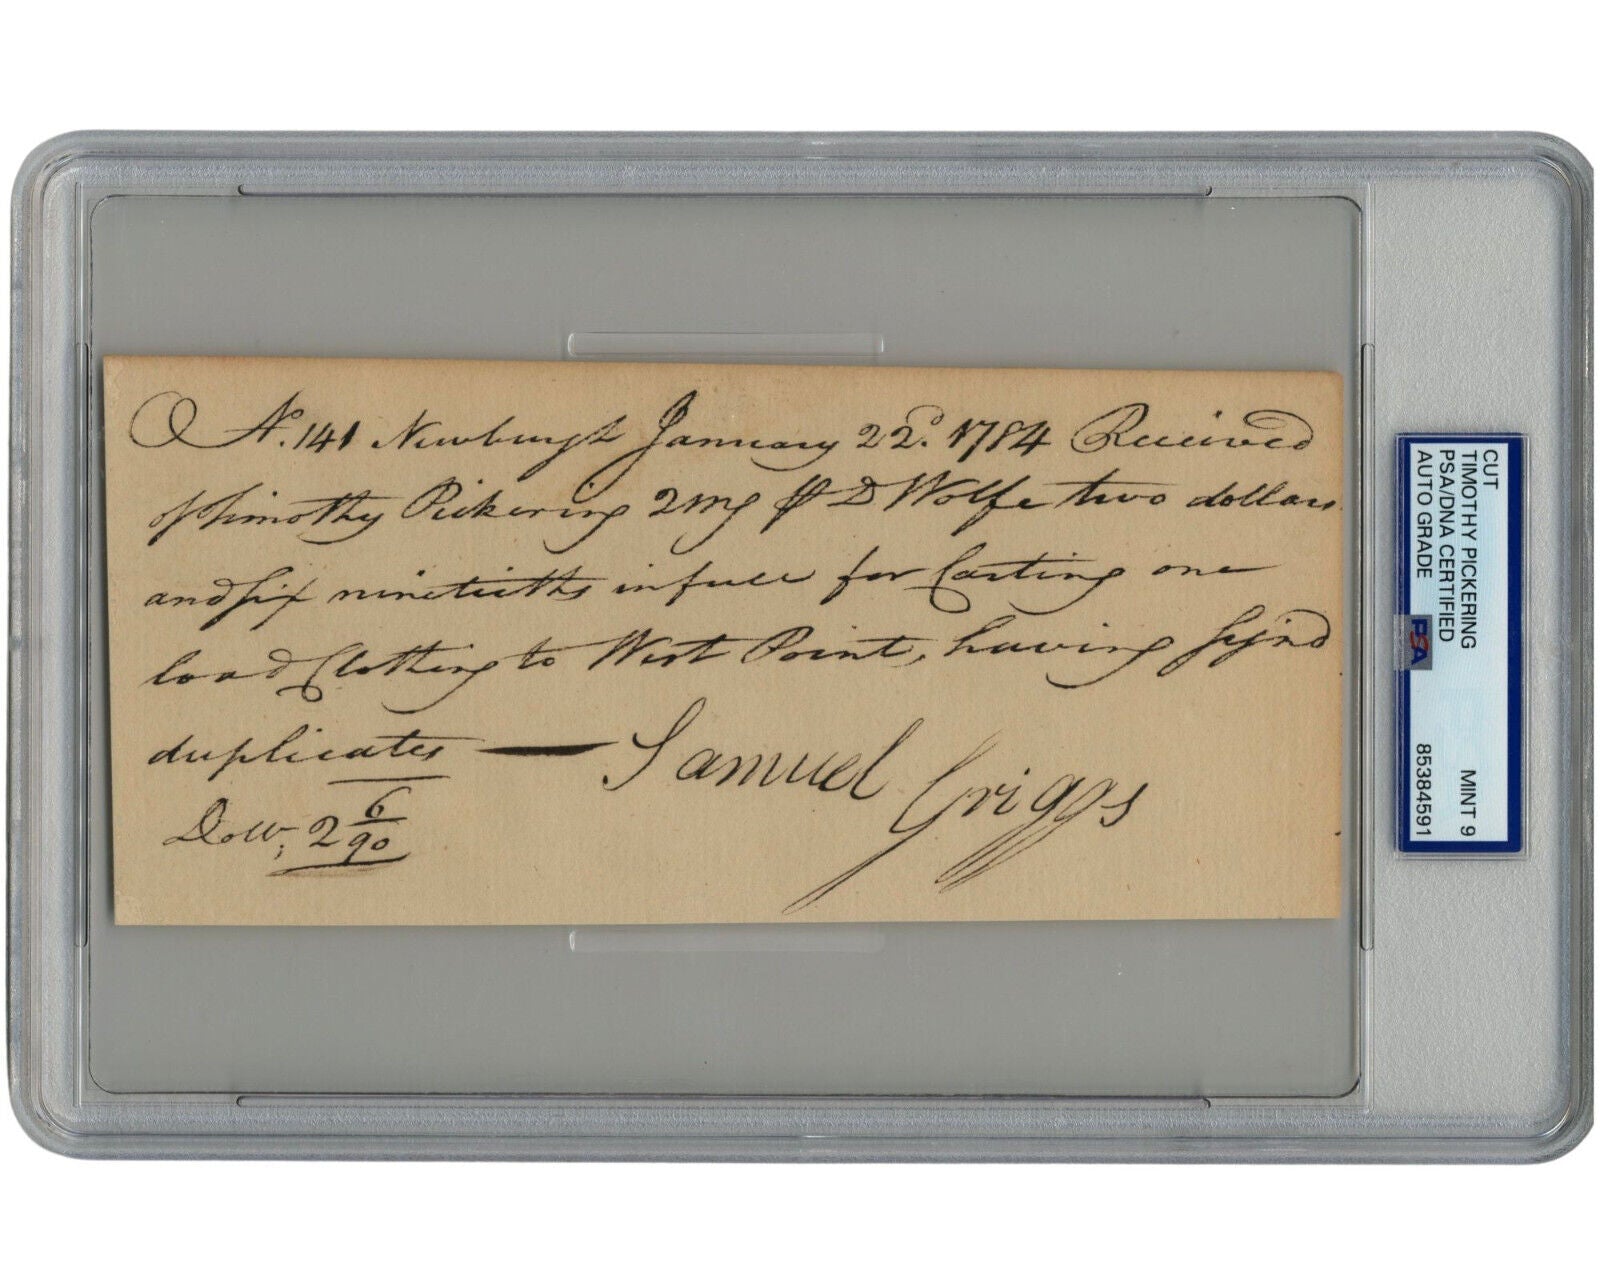 No. 141 Newburgh January 22d. 1784 Received
of Timothy Pickering QMG ℘ D Wolfe two dollars
and six ninetieths in full for Carting one
load Clothing to West Point, having sign'd
duplicates —
Samuel Griggs
Dollr; 2 6/90
CUT
TIMOTHY PICKERING
PSA/DNA CERTIFIED
AUTO GRADE
MINT 9
85384591
PSA